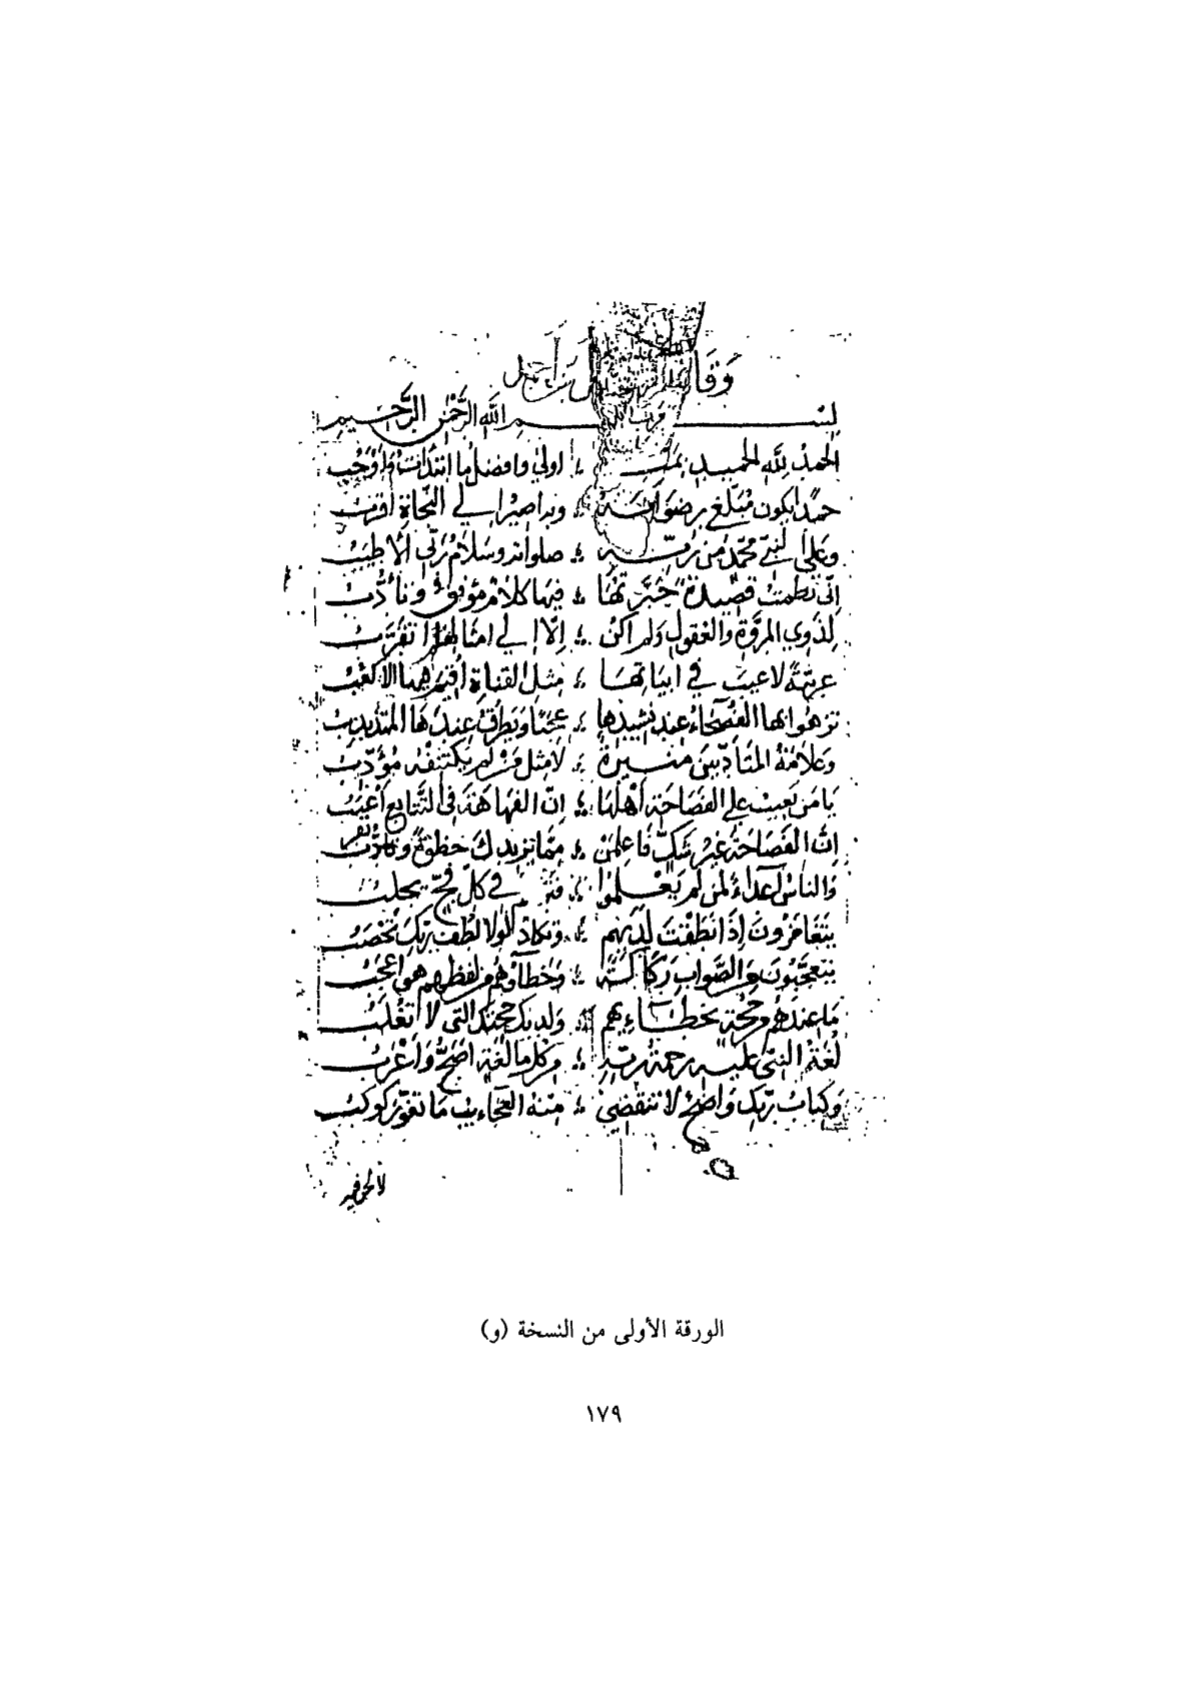 وقا بن أحمل
بسم الله الرحمن الرحيم
الحمد لله الحميد بمنه اولى وافضل ما ابتدات واوجب
حمدا يكون مبلغي رضوانه وبه اصير الى النجاة اقرب
وعلى النبي محمد من ربه صلواته وسلام ربى الاطيب
انى نظمت قصيدة حبرتها فيها كلام مؤنق وتأدب
لذوي المروة والعقول ولم اكن الا الى امثالهم اتقرب
عربية لا عيب في ابياتها مثل القناة اقيم فيها الاكعب
تزهوا بها الفصحاء عند نشيدها عجبا ويطرق عندها المتذبذب
وعلامة المتأدبين منيرة لا مثل من لم يكتنفه مؤدب
يا من يعيب على الفصاحة اهلها ان الفهاهة في التتايع اعيب
ان الفصاحة غير شك فاعلمن مما تزيدك حظوة وتقرب
والناس اعداء لمن لم يعلموا في كل فج يجلب
يتغامزون اذا نطقت لديهم وتكاد لولا لطف ربك تحصب
يتعجبون من الصواب ركاكة وخطاؤهم من لفظهم هو اعجب
ما عندهم من حجة بخطاءيهم ولديك حجتك التى لا تغلب
لغة النبي عليه رحمة ربه من كل ما لغة اصح واعرب
وكتاب ربك واضح لا تنقضي منه العجاءيب ما تغور كوكب
لا لحن فيه
الورقة الأولى من النسخة (و)
١٧٩